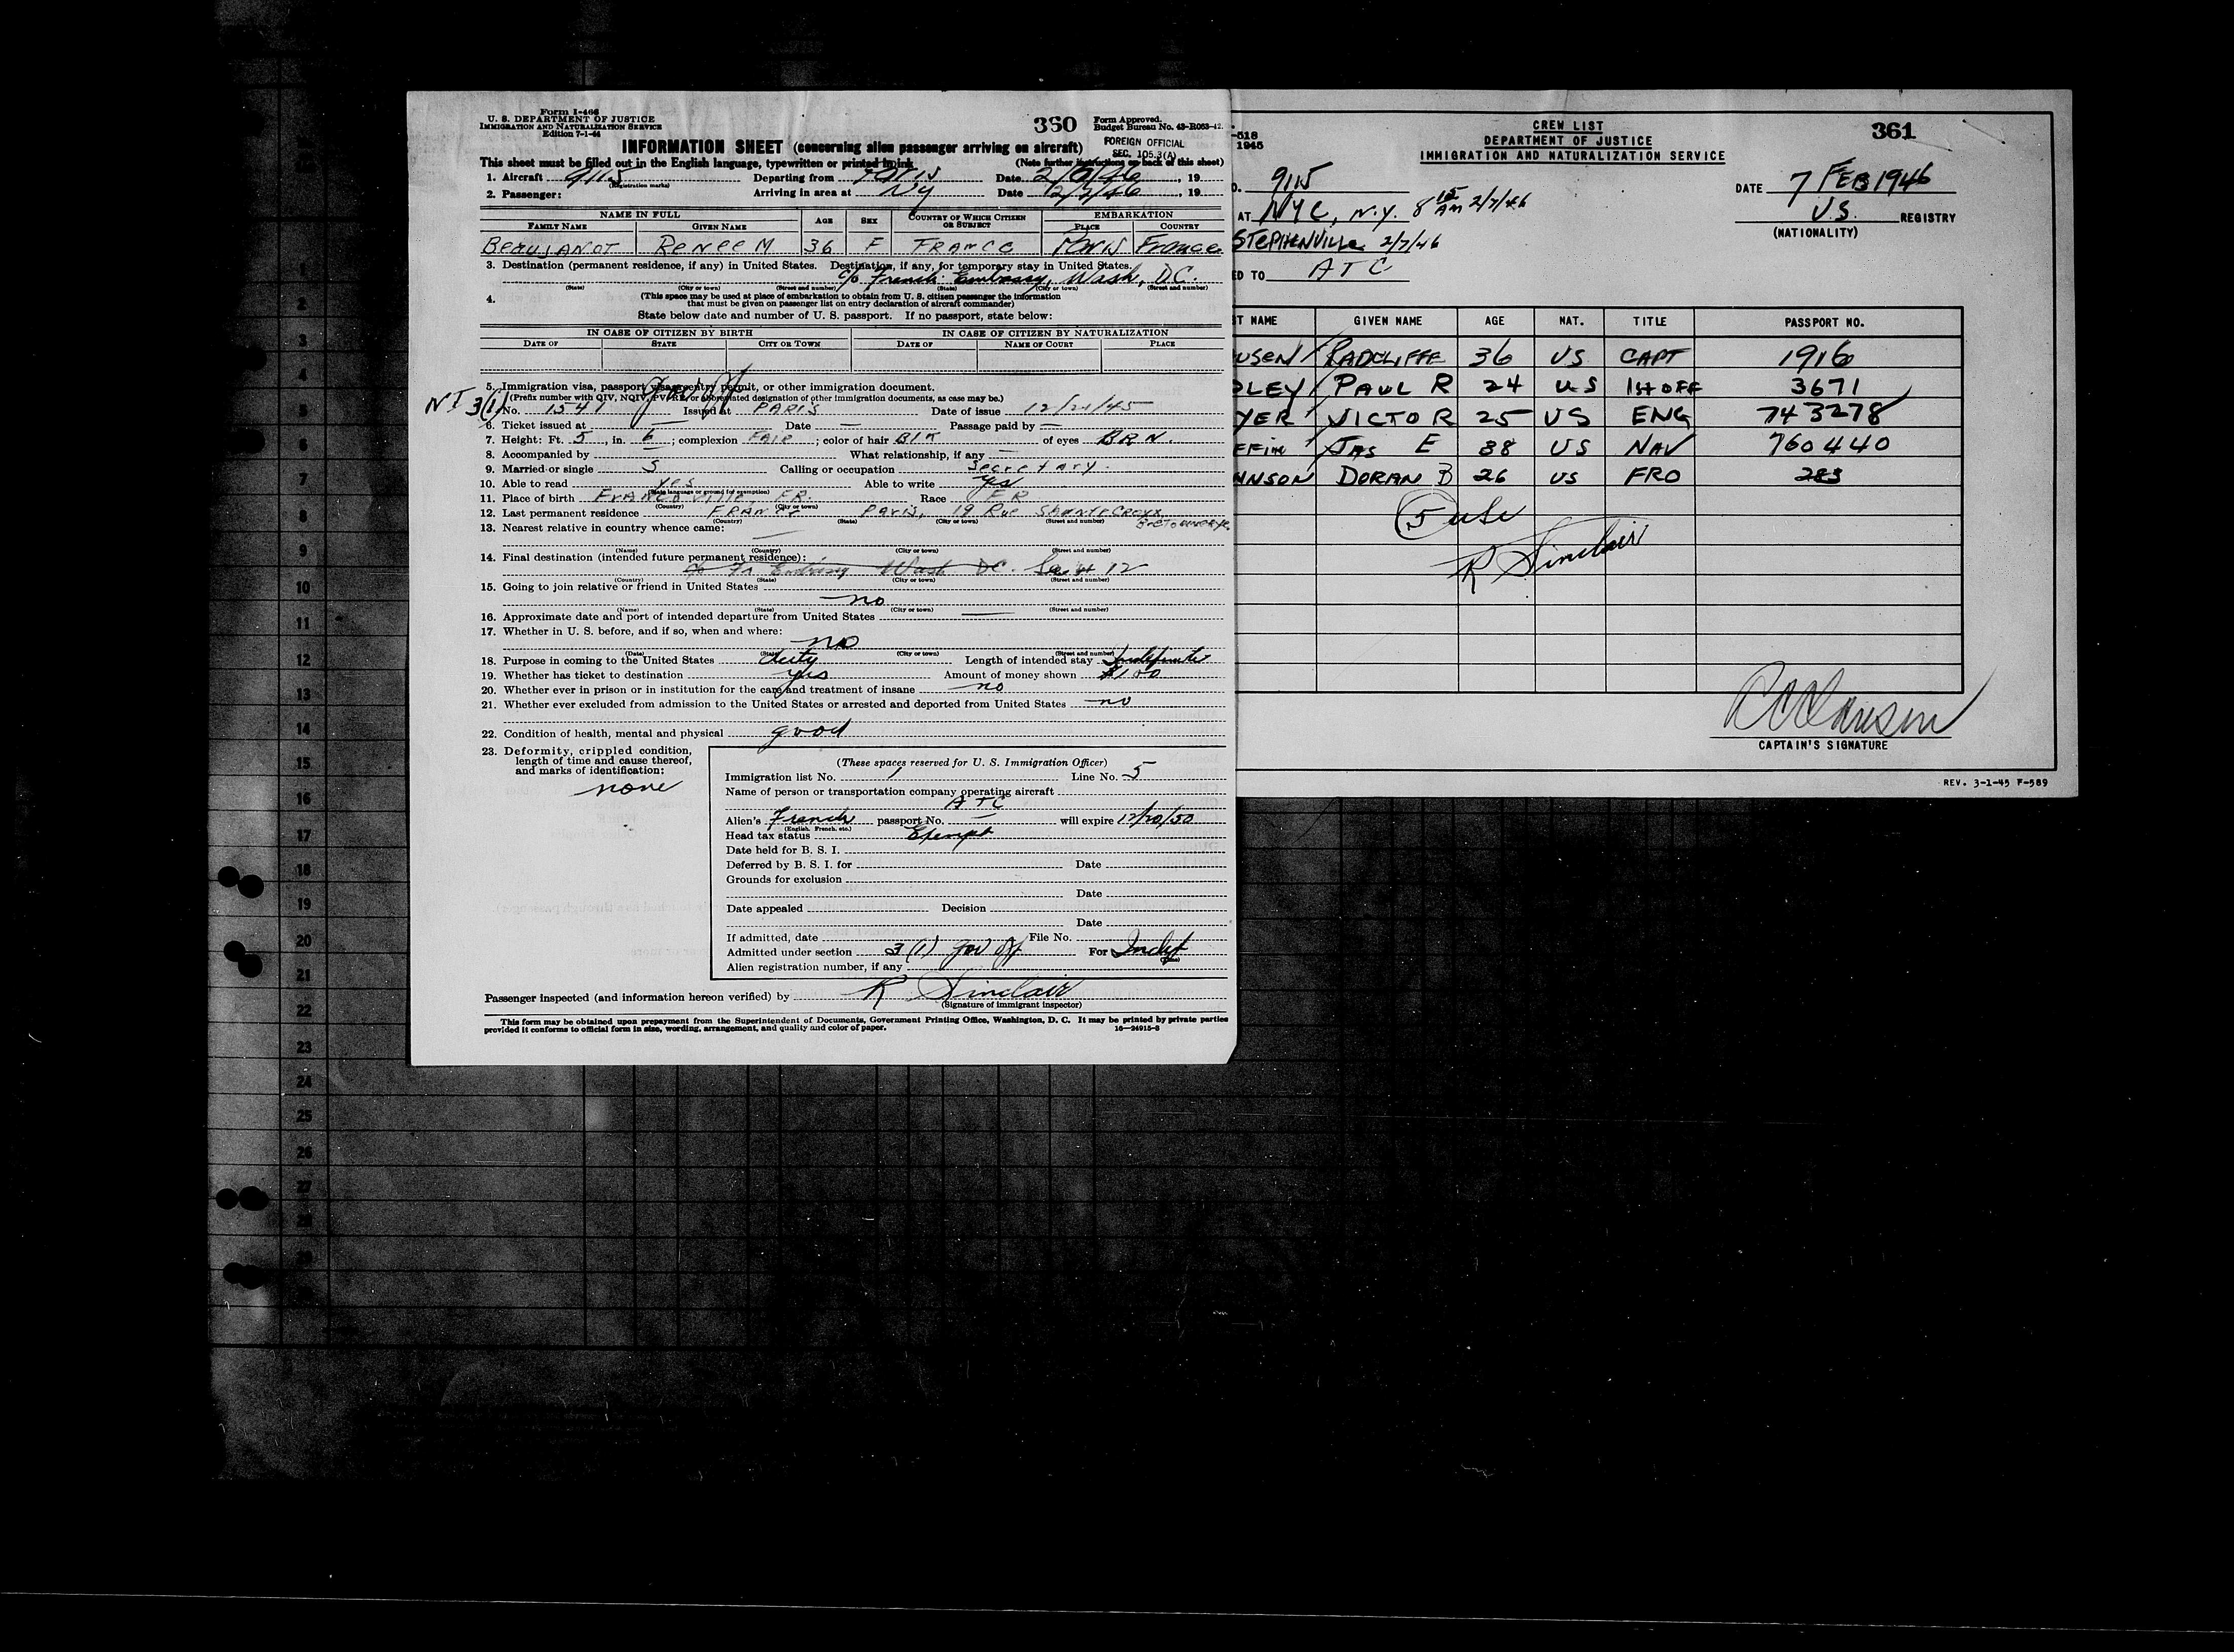 Form I-466
U. S. DEPARTMENT OF JUSTICE
IMMIGRATION AND NATURALIZATION SERVICE
Edition 7-1-44
360
Form Approved.
Budget Bureau No. 43-R063-42.
FOREIGN OFFICIAL
SEC. 105.3(A)
INFORMATION SHEET (concerning alien passenger arriving on aircraft)
This sheet must be filled out in the English language, typewritten or printed in ink (Note further instructions on back of this sheet)
1. Aircraft 9115 Departing from Paris Date 2/ /46, 19
(Registration marks)
2. Passenger: Arriving in area at NY Date 2/7/46, 19
NAME IN FULL AGE SEX COUNTRY OF WHICH CITIZEN OR SUBJECT EMBARKATION
FAMILY NAME GIVEN NAME PLACE COUNTRY
BEAUJANOT RENEE M 36 F FRANCE Paris France
3. Destination (permanent residence, if any) in United States. Destination, if any, for temporary stay in United States.
c/o French Embassy, Wash, D.C.
(State) (City or town) (Street and number) (State) (City or town) (Street and number)
4. (This space may be used at place of embarkation to obtain from U. S. citizen passenger the information
that must be given on passenger list on entry declaration of aircraft commander)
State below date and number of U. S. passport. If no passport, state below:
IN CASE OF CITIZEN BY BIRTH IN CASE OF CITIZEN BY NATURALIZATION
DATE OF STATE CITY OR TOWN DATE OF NAME OF COURT PLACE
5. Immigration visa, passport visa, reentry permit, or other immigration document.
(Prefix number with QIV, NQIV, PV, RP, or abbreviated designation of other immigration documents, as case may be.)
NI 3(1) No. 1541 Issued at PARIS Date of issue 12/21/45
6. Ticket issued at — Date — Passage paid by —
7. Height: Ft. 5, in. 6; complexion FAIR; color of hair BlK of eyes BRN.
8. Accompanied by — What relationship, if any —
9. Married or single S Calling or occupation Secretary.
10. Able to read yes Able to write yes
(State language or ground for exemption)
11. Place of birth FR. Race FR
(Country) (City or town)
12. Last permanent residence FRANCE Paris, 19 Rue
(Country) (State) (City or town) (Street and number)
13. Nearest relative in country whence came: —
(Name) (Country) (City or town) (Street and number)
14. Final destination (intended future permanent residence):
c/o Fr Embassy Wash DC. 12
(Country) (State) (City or town) (Street and number)
15. Going to join relative or friend in United States
no
(Name) (State) (City or town) (Street and number)
16. Approximate date and port of intended departure from United States —
17. Whether in U. S. before, and if so, when and where:
no
(Date) (State) (City or town) (Street and number)
18. Purpose in coming to the United States duty Length of intended stay Indefinite
19. Whether has ticket to destination yes Amount of money shown $100
20. Whether ever in prison or in institution for the care and treatment of insane no
21. Whether ever excluded from admission to the United States or arrested and deported from United States no
22. Condition of health, mental and physical good
23. Deformity, crippled condition,
length of time and cause thereof,
and marks of identification:
none
(These spaces reserved for U. S. Immigration Officer)
Immigration list No. 1 Line No. 5
Name of person or transportation company operating aircraft
ATC
Alien's French passport No. — will expire 12/20/50
(English, French, etc.)
Head tax status Exempt
Date held for B. S. I.
Deferred by B. S. I. for Date
Grounds for exclusion
Date
Date appealed Decision
Date
If admitted, date File No.
Admitted under section 3(1) gov off For Indef
Alien registration number, if any
Passenger inspected (and information hereon verified) by R Sinclair
(Signature of immigrant inspector)
This form may be obtained upon prepayment from the Superintendent of Documents, Government Printing Office, Washington, D. C. It may be printed by private parties
provided it conforms to official form in size, wording, arrangement, and quality and color of paper. 16—24915-3
-518
1945
CREW LIST
DEPARTMENT OF JUSTICE
IMMIGRATION AND NATURALIZATION SERVICE
361
9115
DATE 7 FEB 1946
AT NYC, N.Y. 8 15 AM 2/7/46
U.S. REGISTRY
(NATIONALITY)
STEPHENVILLE 2/7/46
ED TO ATC
T NAME GIVEN NAME AGE NAT. TITLE PASSPORT NO.
USEN RADCLIFFE 36 US CAPT 1916
DLEY PAUL R 24 US 1ST OFF 3671
YER VICTOR 25 US ENG 743278
EFIN JAS E 38 US NAV 760440
HNSON DORAN B 26 US FRO 283
5 USC
R Sinclair
CAPTAIN'S SIGNATURE
REV. 3-1-45 F-589
1
2
3
4
5
6
7
8
9
10
11
12
13
14
15
16
17
18
19
20
21
22
23
24
25
26
27
28